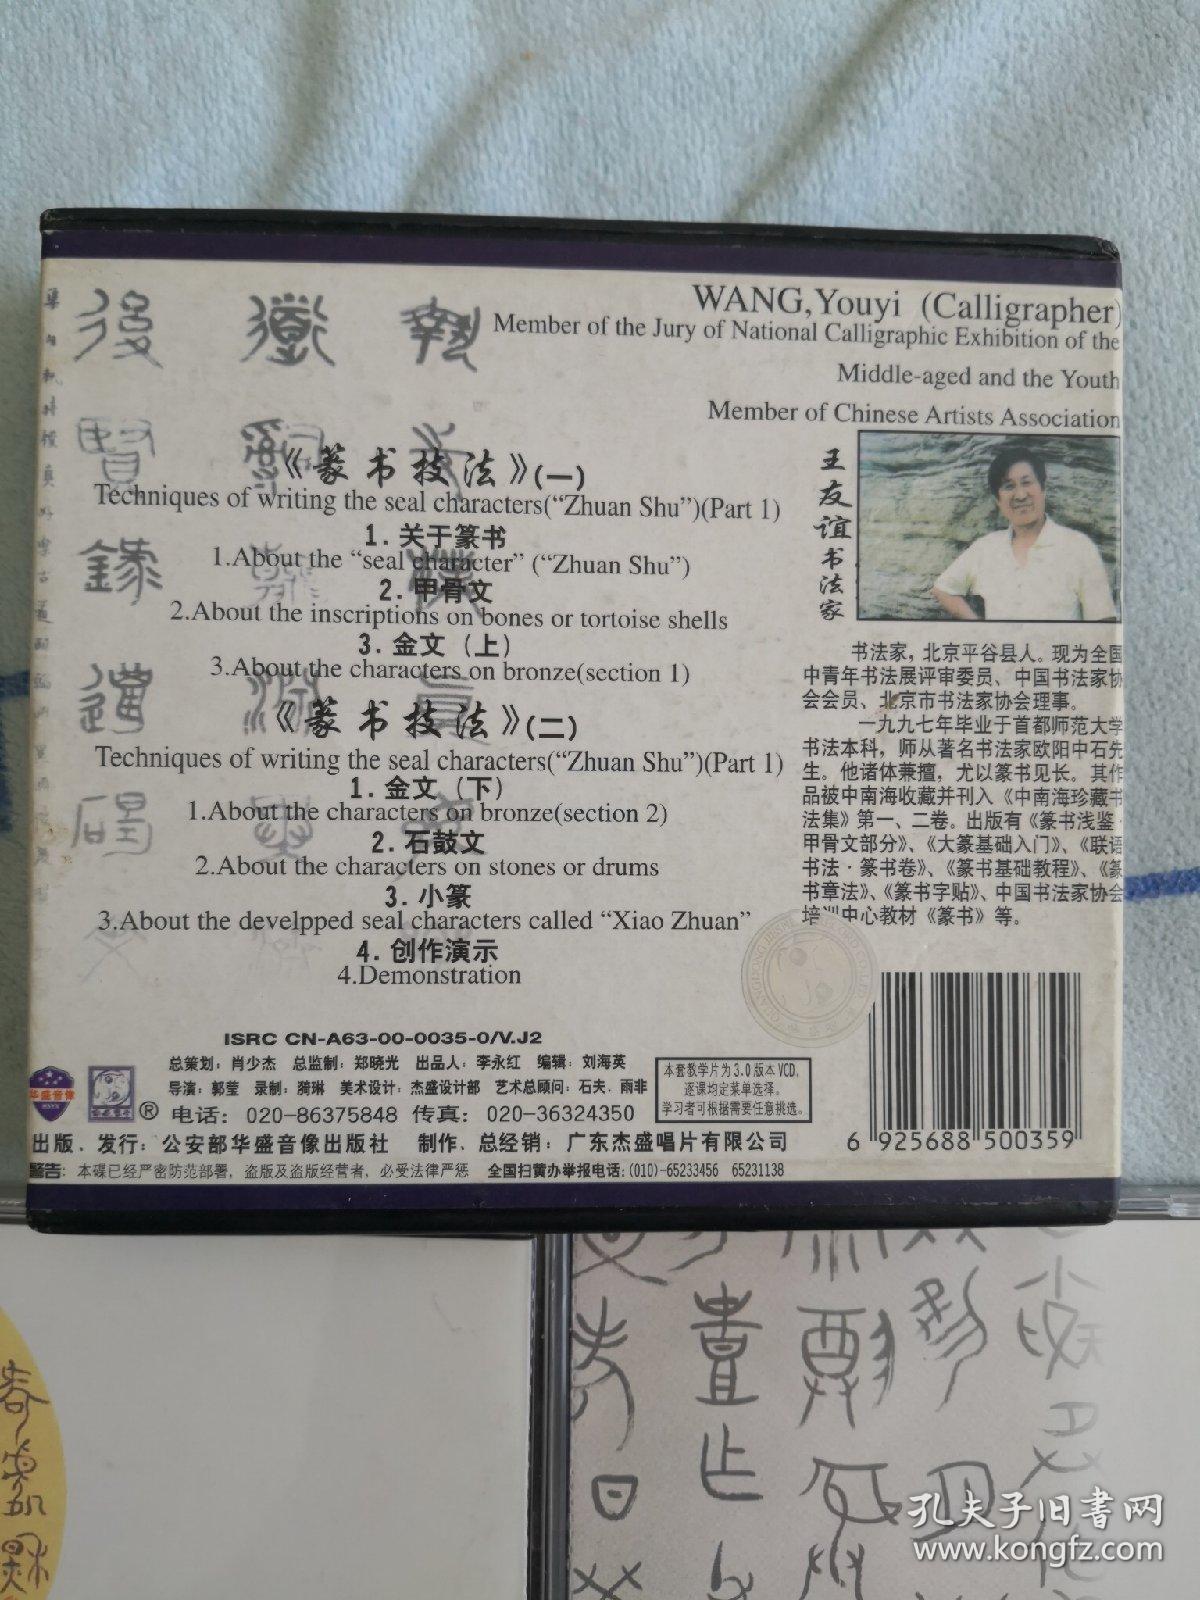 WANG,Youyi (Calligrapher)
Member of the Jury of National Calligraphic Exhibition of the
Middle-aged and the Youth
Member of Chinese Artists Association
王友谊书法家
《篆书技法》(一)
Techniques of writing the seal characters(“Zhuan Shu”)(Part 1)
1. 关于篆书
1.About the “seal character” (“Zhuan Shu”)
2. 甲骨文
2.About the inscriptions on bones or tortoise shells
3. 金文（上）
3.About the characters on bronze(section 1)
《篆书技法》(二)
Techniques of writing the seal characters(“Zhuan Shu”)(Part 1)
1. 金文（下）
1.About the characters on bronze(section 2)
2. 石鼓文
2.About the characters on stones or drums
3. 小篆
3.About the develpped seal characters called “Xiao Zhuan”
4. 创作演示
4.Demonstration
书法家，北京平谷县人。现为全国
中青年书法展评审委员、中国书法家协
会会员、北京市书法家协会理事。
一九九七年毕业于首都师范大学
书法本科，师从著名书法家欧阳中石先
生。他诸体兼擅，尤以篆书见长。其作
品被中南海收藏并刊入《中南海珍藏书
法集》第一、二卷。出版有《篆书浅鉴·
甲骨文部分》、《大篆基础入门》、《联语
书法·篆书卷》、《篆书基础教程》、《篆
书章法》、《篆书字贴》、中国书法家协会
培训中心教材《篆书》等。
ISRC CN-A63-00-0035-0/V.J2
总策划：肖少杰 总监制：郑晓光 出品人：李永红 编辑：刘海英
导演：郭莹 录制：漪琳 美术设计：杰盛设计部 艺术总顾问：石夫、雨非
® 电话：020-86375848 传真：020-36324350
本套教学片为3.0版本VCD，
逐课均定菜单选择。
学习者可根据需要任意挑选。
华盛音像
出版、发行：公安部华盛音像出版社 制作、总经销：广东杰盛唱片有限公司
警告：本碟已经严密防范部署，盗版及盗版经营者，必受法律严惩 全国扫黄办举报电话：(010)-65233456 65231138
6 925688 500359
孔夫子旧书网
www.kongfz.com